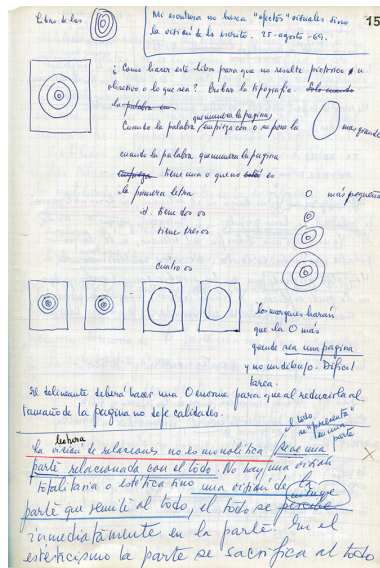 Libro de las
Mi escritura no busca "efectos" visuales sino
la visión de lo escrito. 25-agosto-69.
15
¿Como hacer este libro para que no resulte pictorico u
objetivo o lo que sea? Probar la tipografia. Solo cuando
la palabra en
que numera la pagina
Cuando la palabra empieza con o se pone la O mas grande
cuando la palabra que numera la pagina
empieza tiene una o que no es
la primera letra o más pequeña
id. tiene dos os
tiene tres os
cuatro os
Los margenes harán
que la O más
grande sea una pagina
y no un dibujo. Dificil
tarea.
El delineante deberá hacer una O enorme para que al reducirla al
tamaño de la pagina no deje calidades.
el todo
se representa
en una
parte
lectura
La visión de relaciones no es monolitica. Se ve una
parte relacionada con el todo. No hay una visión
totalitaria o estética sino una visión de la
parte que remite al todo, el todo se
inmediatamente en la parte. En el
esteticismo la parte se sacrifica al todo